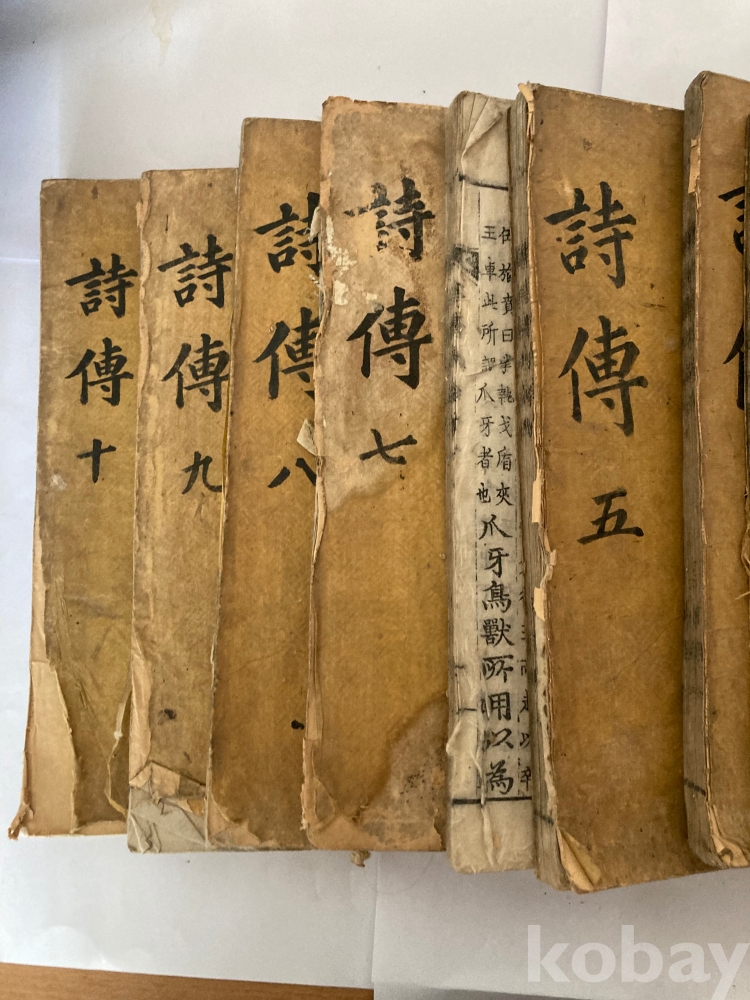 詩傳五
旅賁曰掌執戈盾夾
王車此所謂爪牙者也
爪牙鳥獸所用以為
詩傳七
詩傳八
詩傳九
詩傳十
kobay